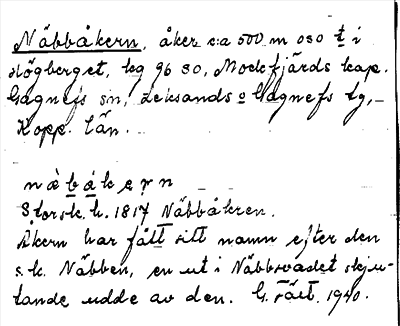 Näbbåkern, åker c:a 500 m OSO t i
Högberget, kg 96 80, Mockfjärds kap.
Gagnefs sn, Leksands o Gagnefs tg,
Kopp. län.
nàbákeṛn
Storsk. k. 1817 Näbbåkren.
Åkern har fått sitt namn efter den
s.k. Näbben, en ut i Näbbsvadet skju-
tande udde av den. G. Fält. 1940.